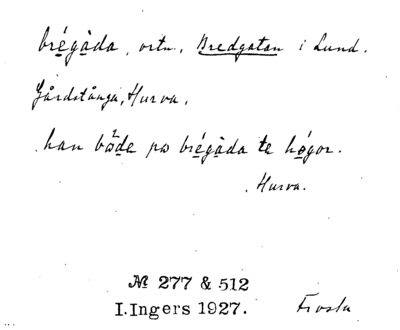 brégàda, ortn., Bredgatan i Lund.
Gårdstånga, Hurva.
han bode på brégàda te högor.
Hurva.
№ 277 & 512
I. Ingers 1927. Frosta